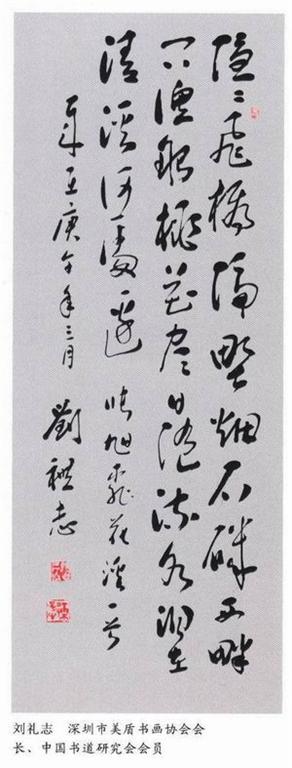 隱〻飛橋隔野烟石磯西畔
问渔船桃花尽日随流水洞在
清溪何處邊 張旭桃花溪一首
庚午年三月 劉禮志
刘礼志　深圳市美盾书画协会会
长、中国书道研究会会员